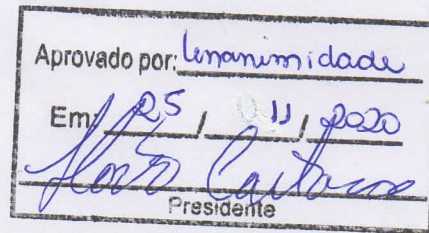 Aprovado por: Unanimidade
Em: 25 / 11 / 2020
Presidente